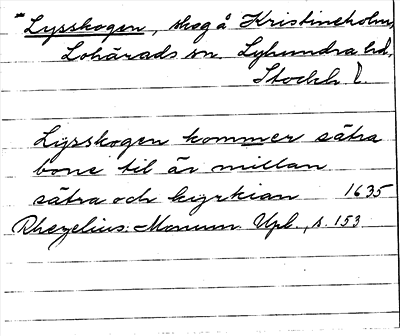 *Lysskogen, skog å Kristineholm,
Lohärads sn. Lyhundra hd,
Stockh l.
Lysskogen kommer sätra
bone til är millan
sätra och kyrkian 1635
Rhezelius: Monum Upl., s. 153